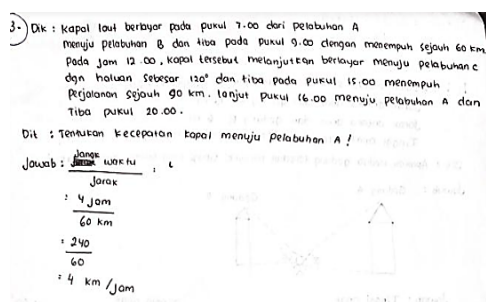 3. Dik : Kapal laut berlayar pada pukul 7.00 dari pelabuhan A
menuju pelabuhan B dan tiba pada pukul 9.00 dengan menempuh sejauh 60 km
Pada jam 12.00, kapal tersebut melanjutkan berlayar menuju pelabuhan c
dgn haluan sebesar 120° dan tiba pada pukul 15.00 menempuh
perjalanan sejauh 90 km. lanjut pukul 16.00 menuju pelabuhan A dan
Tiba pukul 20.00.
Dit : Tentukan kecepatan kapal menuju pelabuhan A !
Jawab : Jangk waktu
Jarak
: 4 jam
60 km
= 240
60
= 4 km/jam